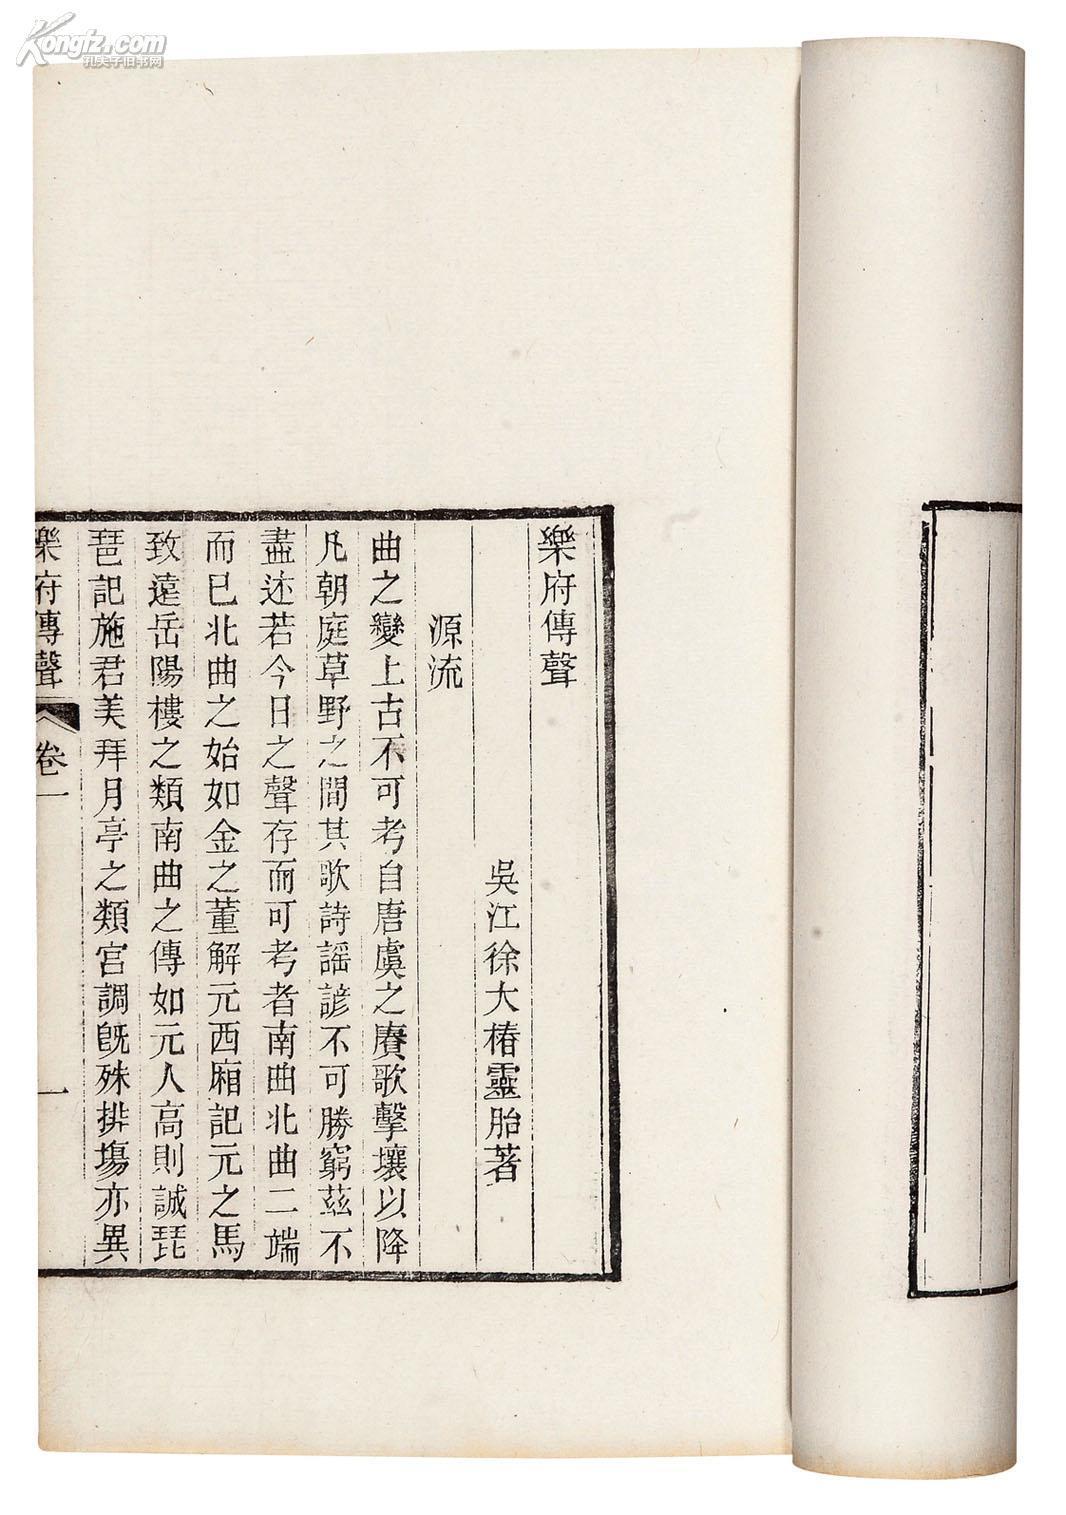 Kongfz.com
孔夫子旧书网
樂府傳聲
吳江徐大椿靈胎著
源流
曲之變上古不可考自唐虞之賡歌擊壤以降
凡朝庭草野之間其歌詩謡諺不可勝窮茲不
盡述若今日之聲存而可考者南曲北曲二端
而已北曲之始如金之董解元西廂記元之馬
致遠岳陽樓之類南曲之傳如元人高則誠琵
琶記施君美拜月亭之類宮調旣殊排塲亦異
樂府傳聲 卷一 一